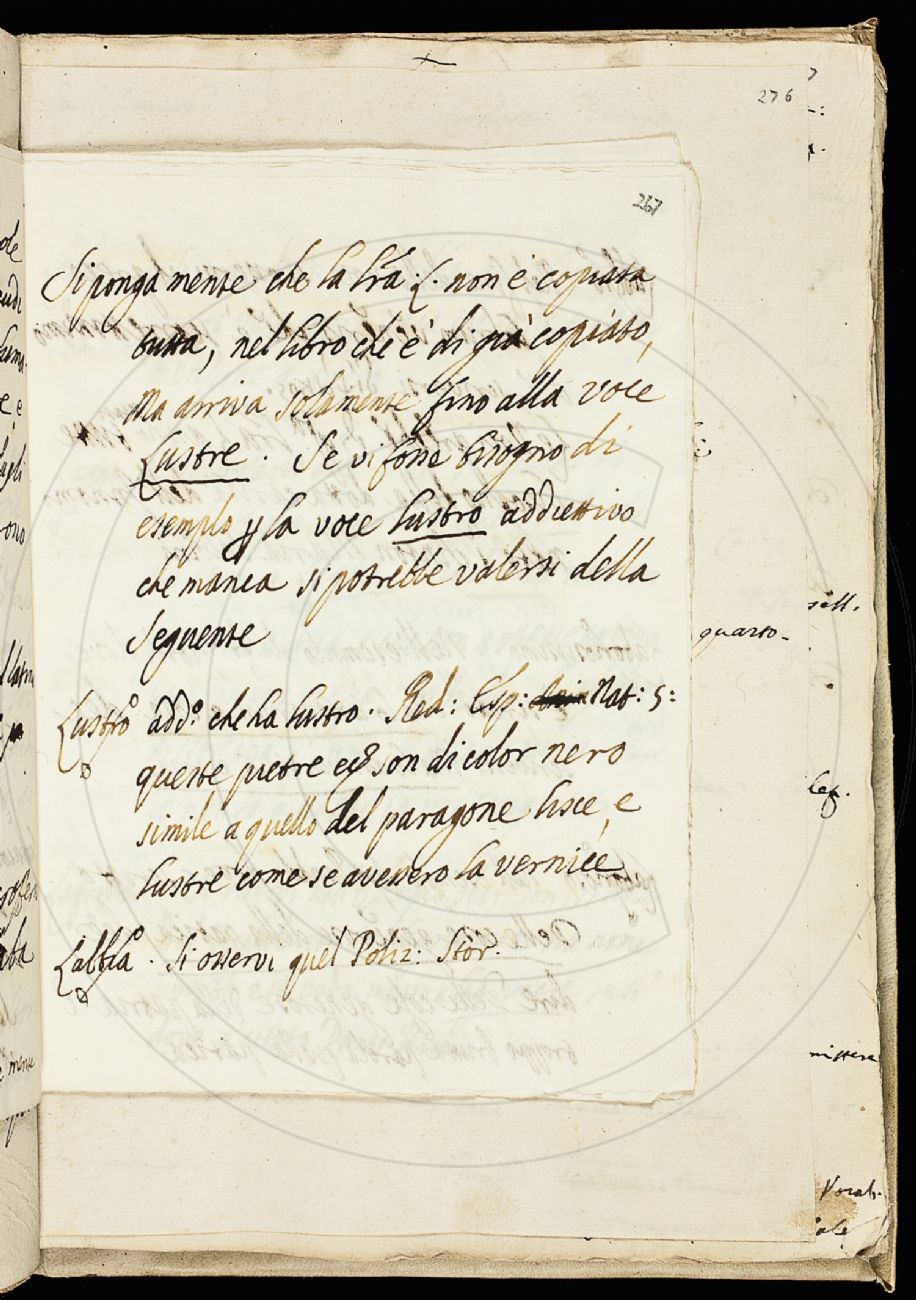 276
267
Si ponga mente che la lr̃a: L. non è copiata
tutta, nel libro che è di già copiato,
Ma arriva solamente fino alla voce
Lustre. Se vi fosse bisogno di
esemplo ꝑ la voce lustro addiettivo
che manca si potrebbe valersi della
Seguente
Lustro add.º che ha lustro. Red: Esp: Nat: 5:
queste pietre son di color nero
simile a quello del paragone lisce, e
lustre come se avessero la vernice
. Si osservi quel Poliz: Stor.
quarto.
Vocab.